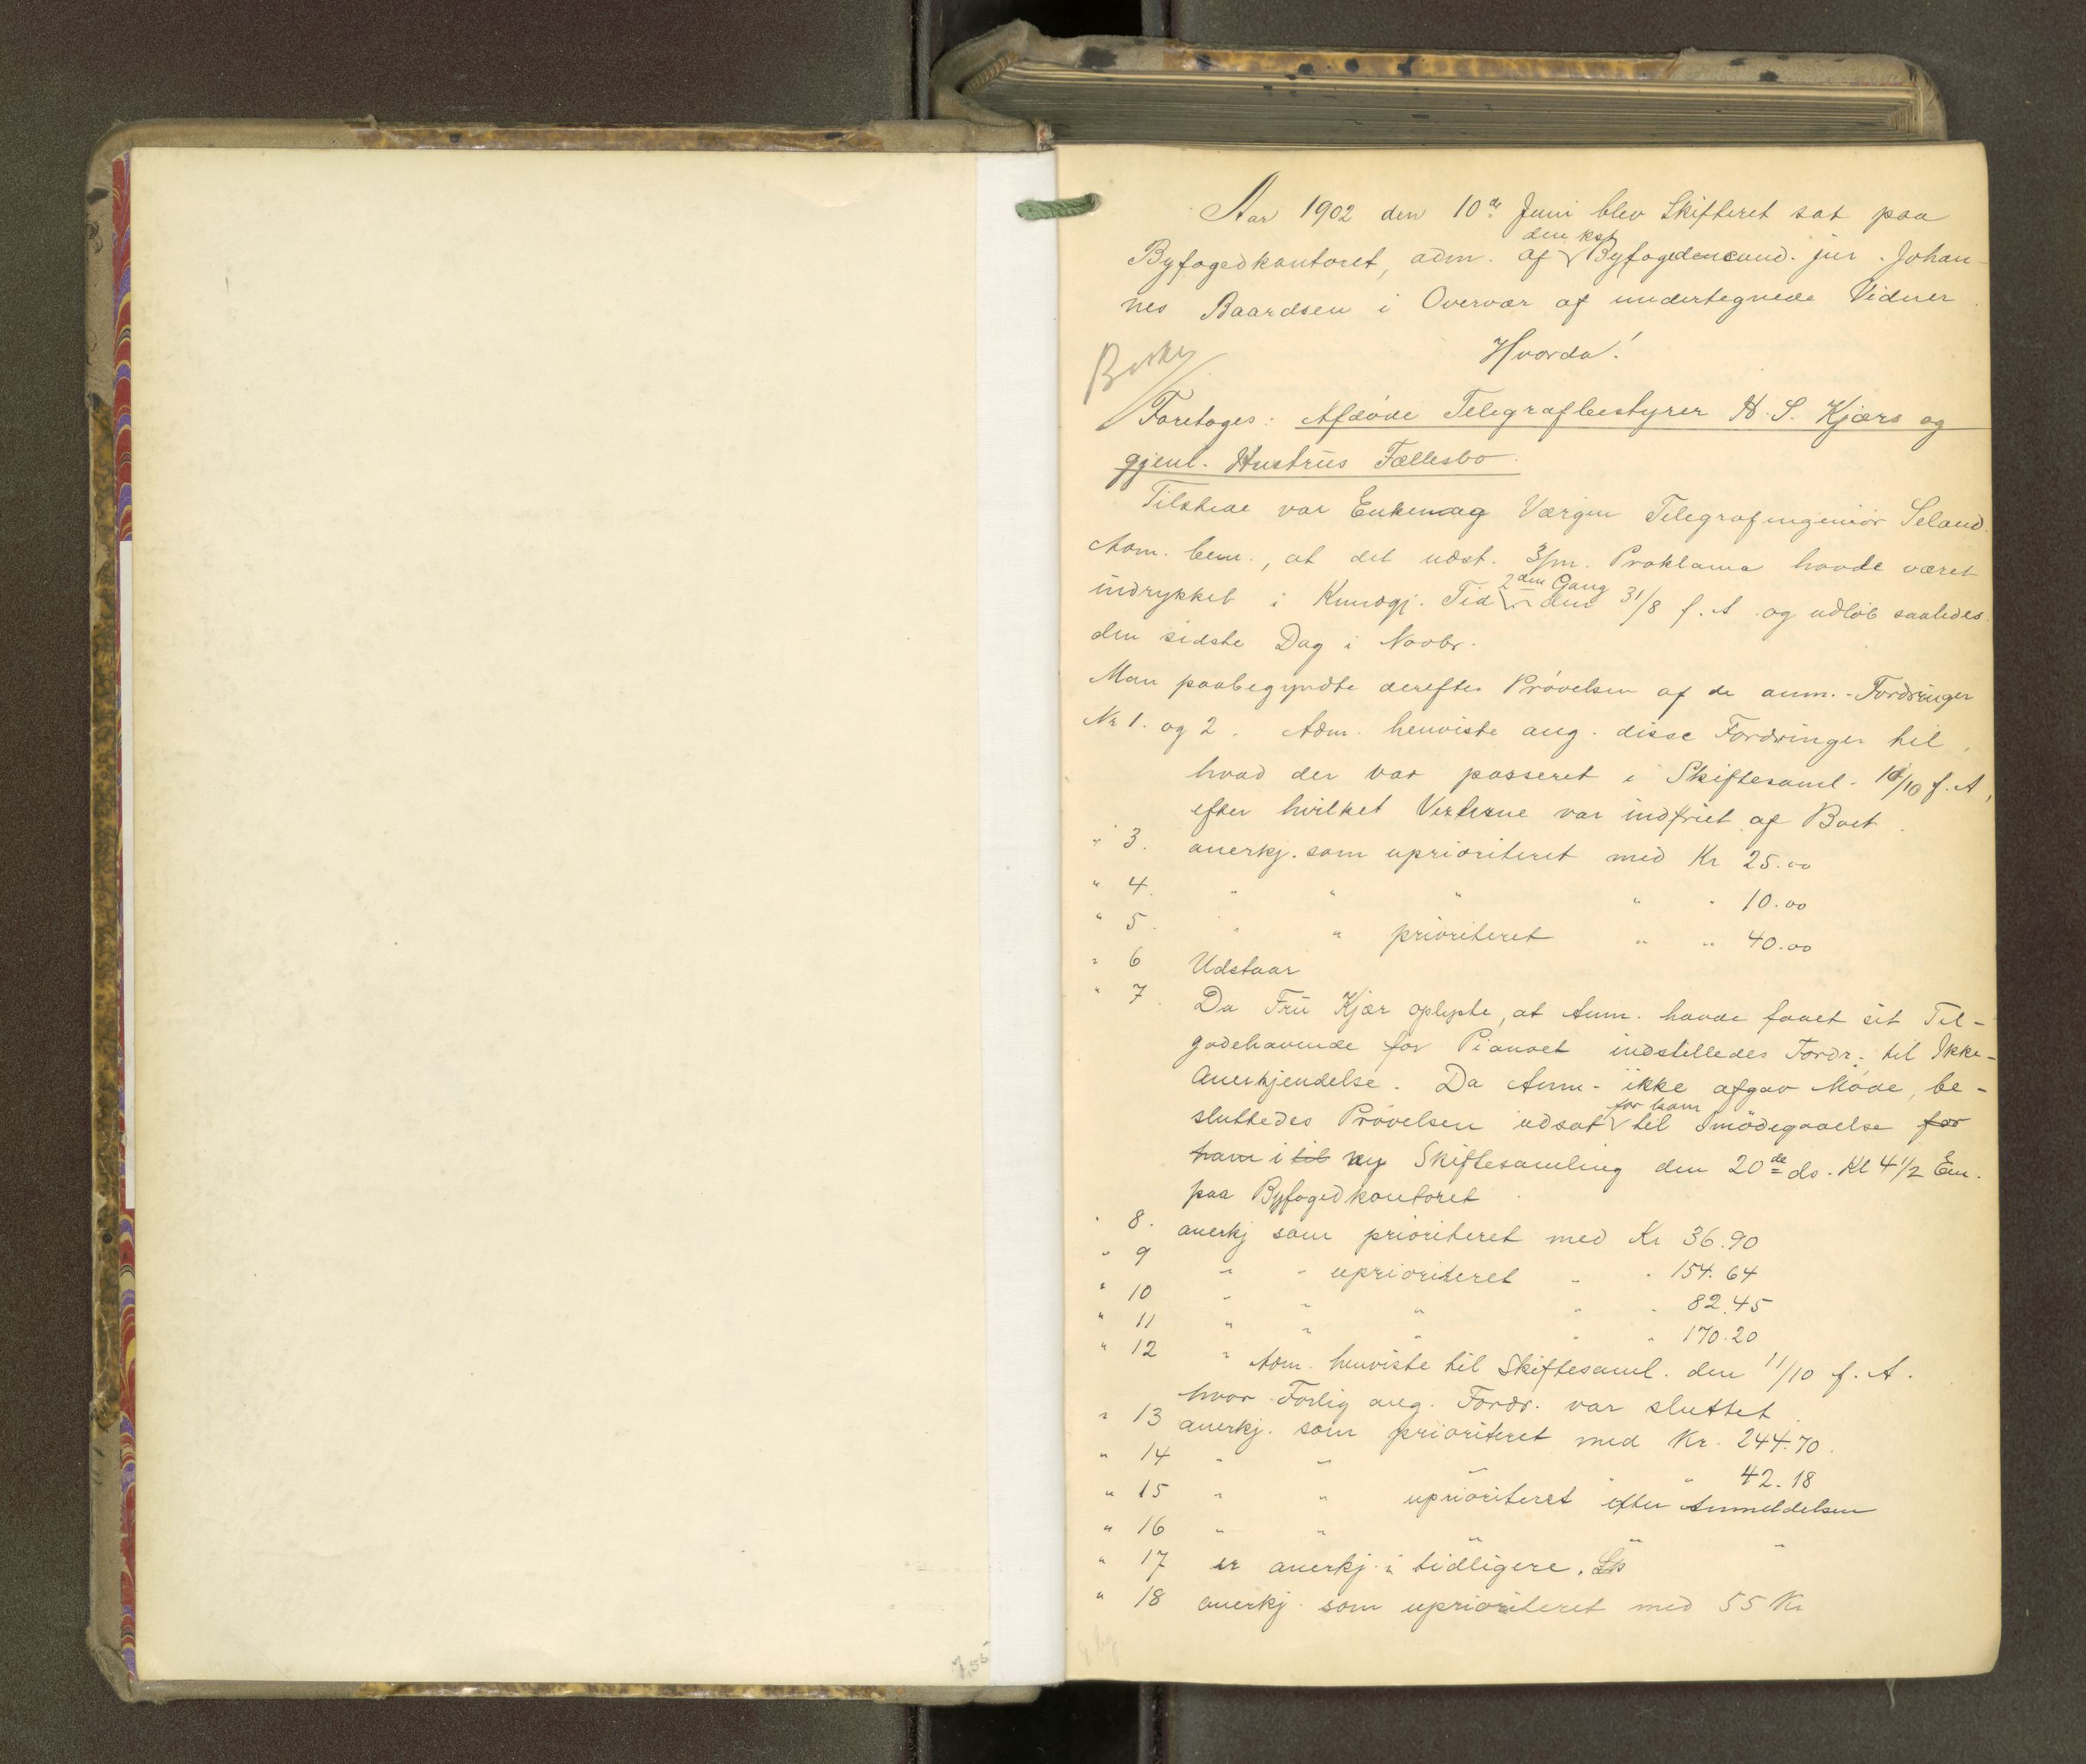 Aar 1902 den 10de Juni blev Skifteret sat paa
Byfogedkontoret, adm. af den kst Byfogeden cand. jur. Johan-
nes Baardsen i Overvær af undertegnede Vidner.
Hvorda!
Foretoges: Afdøde Telegrafbestyrer H. S. Kjærs og
gjenl. Hustrus Fællesbo.
Tilstede var Enken og Værgen Telegrafingeniør Seland.
Adm. bem., at det udst. 3/m. Proklama havde været
indrykket i Kundgj. Tid 2den Gang den 31/8 f. A. og udløb saaledes
den sidste Dag i Novbr.
Man paabegyndte derefter Prøvelsen af de anm. Fordringer
Nr 1. og 2. Adm. henviste ang. disse Fordringer til
hvad der var passeret i Skiftesaml. 10/10 f. A,
efter hvilket Vexlerne var indfriet af Boet.
" 3. anerkj. som uprioriteret med Kr 25.00
" 4. " " " " " 10.00
" 5. " " prioriteret " " 40.00
" 6 Udstaar
" 7. Da Fru Kjær oplyste, at Anm. havde faaet sit Til-
godehavende for Pianoet indstilledes Fordr. til Ikke-
Anerkjendelse. Da Anm. ikke afgav Møde, be-
sluttedes Prøvelsen udsat for ham til Imødegaaelse for
ham i til ny Skiftesamling den 20de ds. Kl 4 1/2 Em.
paa Byfogedkontoret.
" 8. anerkj som prioriteret med Kr 36.90
" 9 " " uprioriteret " " 154.64
" 10 " " " " " 82.45
" 11 " " " " " 170.20
" 12 " Adm. henviste til Skiftesaml. den 11/10 f. A.
hvor Forlig ang. Fordr. var sluttet.
" 13 anerkj. som prioriteret med Kr. 244.70.
" 14 " " " " " 42.18
" 15 " " uprioriteret efter Anmeldelsen
" 16 " " " " "
" 17 er anerkj. i tidligere. Sk
" 18 anerkj. som uprioriteret med 55 Kr
7,55